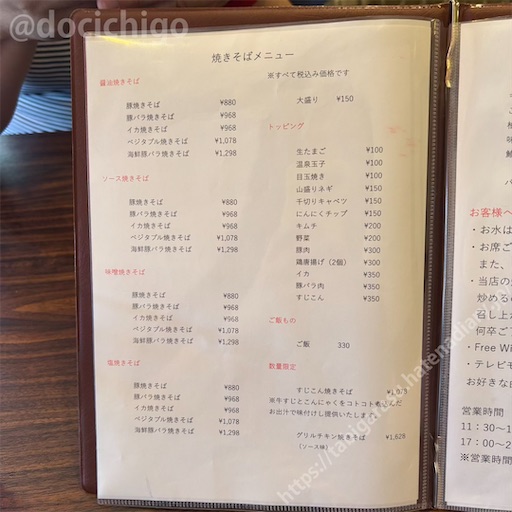 @docichigo
焼きそばメニュー
醤油焼きそば
豚焼きそば ¥880
豚バラ焼きそば ¥968
イカ焼きそば ¥968
ベジタブル焼きそば ¥1,078
海鮮豚バラ焼きそば ¥1,298
ソース焼きそば
豚焼きそば ¥880
豚バラ焼きそば ¥968
イカ焼きそば ¥968
ベジタブル焼きそば ¥1,078
海鮮豚バラ焼きそば ¥1,298
味噌焼きそば
豚焼きそば ¥880
豚バラ焼きそば ¥968
イカ焼きそば ¥968
ベジタブル焼きそば ¥1,078
海鮮豚バラ焼きそば ¥1,298
塩焼きそば
豚焼きそば ¥880
豚バラ焼きそば ¥968
イカ焼きそば ¥968
ベジタブル焼きそば ¥1,078
海鮮豚バラ焼きそば ¥1,298
※すべて税込み価格です
大盛り ¥150
トッピング
生たまご ¥100
温泉玉子 ¥100
目玉焼き ¥100
山盛りネギ ¥150
千切りキャベツ ¥150
にんにくチップ ¥150
キムチ ¥200
野菜 ¥200
豚肉 ¥300
鶏唐揚げ（2個） ¥300
イカ ¥350
豚バラ肉 ¥350
すじこん ¥350
ご飯もの
ご飯 330
数量限定
すじこん焼きそば
※牛すじとこんにゃくをコトコト煮込んだ
お出汁で味付けし提供いたします。
グリルチキン焼きそば ¥1,628
（ソース味）
お客様へ
・お水は
・お席ご
また、
・当店の
炒める
召し上が
何卒ご
・Free Wi
・テレビモ
お好きな
営業時間
11：30－1
17：00－2
※営業時間